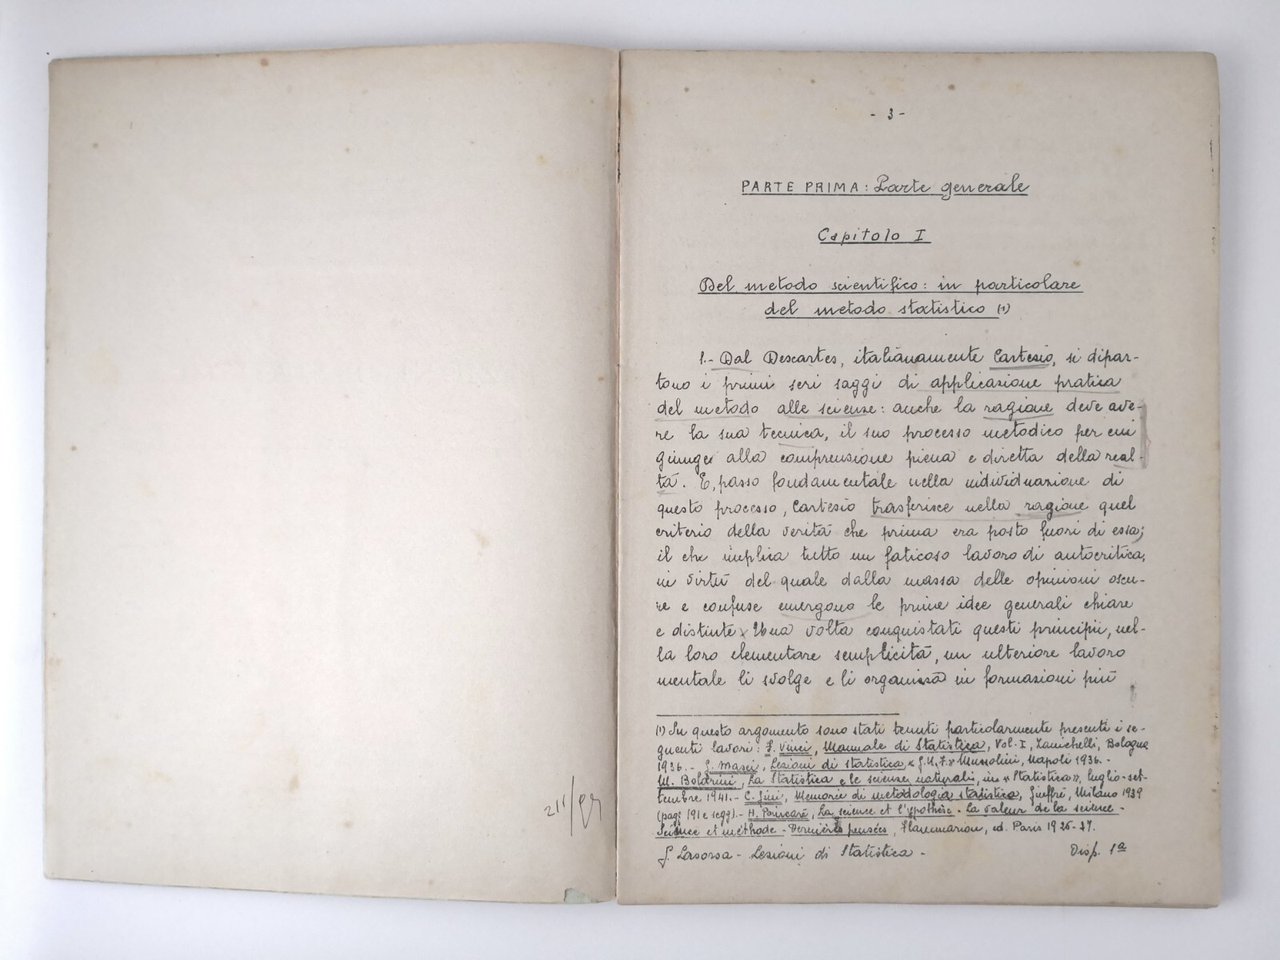 - 3 -
PARTE PRIMA: Parte generale
Capitolo I
Del metodo scientifico: in particolare
del metodo statistico (1)
1.- Dal Descartes, italianamente Cartesio, si dipar-
tono i primi seri saggi di applicazione pratica
del metodo alle scienze: anche la ragione deve ave-
re la sua tecnica, il suo processo metodico per cui
giunge alla comprensione piena e diretta della real-
tà. E, passo fondamentale nella individuazione di
questo processo, Cartesio trasferisce nella ragione quel
criterio della verità che prima era posto fuori di essa;
il che implica tutto un faticoso lavoro di autocritica,
in virtù del quale dalla massa delle opinioni oscu-
re e confuse emergono le prime idee generali chiare
e distinte. Una volta conquistati questi principii, nel-
la loro elementare semplicità, un ulteriore lavoro
mentale li svolge e li organizza in formazioni più
(1) Su questo argomento sono stati tenuti particolarmente presenti i se-
guenti lavori: F. Vinci, Manuale di Statistica, Vol. I, Zanichelli, Bologna
1936.- G. Masci, Lezioni di statistica, « G.U.F.» Mussolini, Napoli 1936.-
M. Boldrini, La Statistica e le scienze naturali, in «Statistica», luglio-set-
tembre 1941.- C. Gini, Memorie di metodologia statistica, Giuffrè, Milano 1939
(pag. 191 e segg.).- H. Poincaré, La science et l'ypothèse - La valeur de la science -
Science et méthode - Dernières pensées, Flammarion, ed. Paris 1926-27.
G. Lasorsa - Lezioni di Statistica -
Disp. 1ª